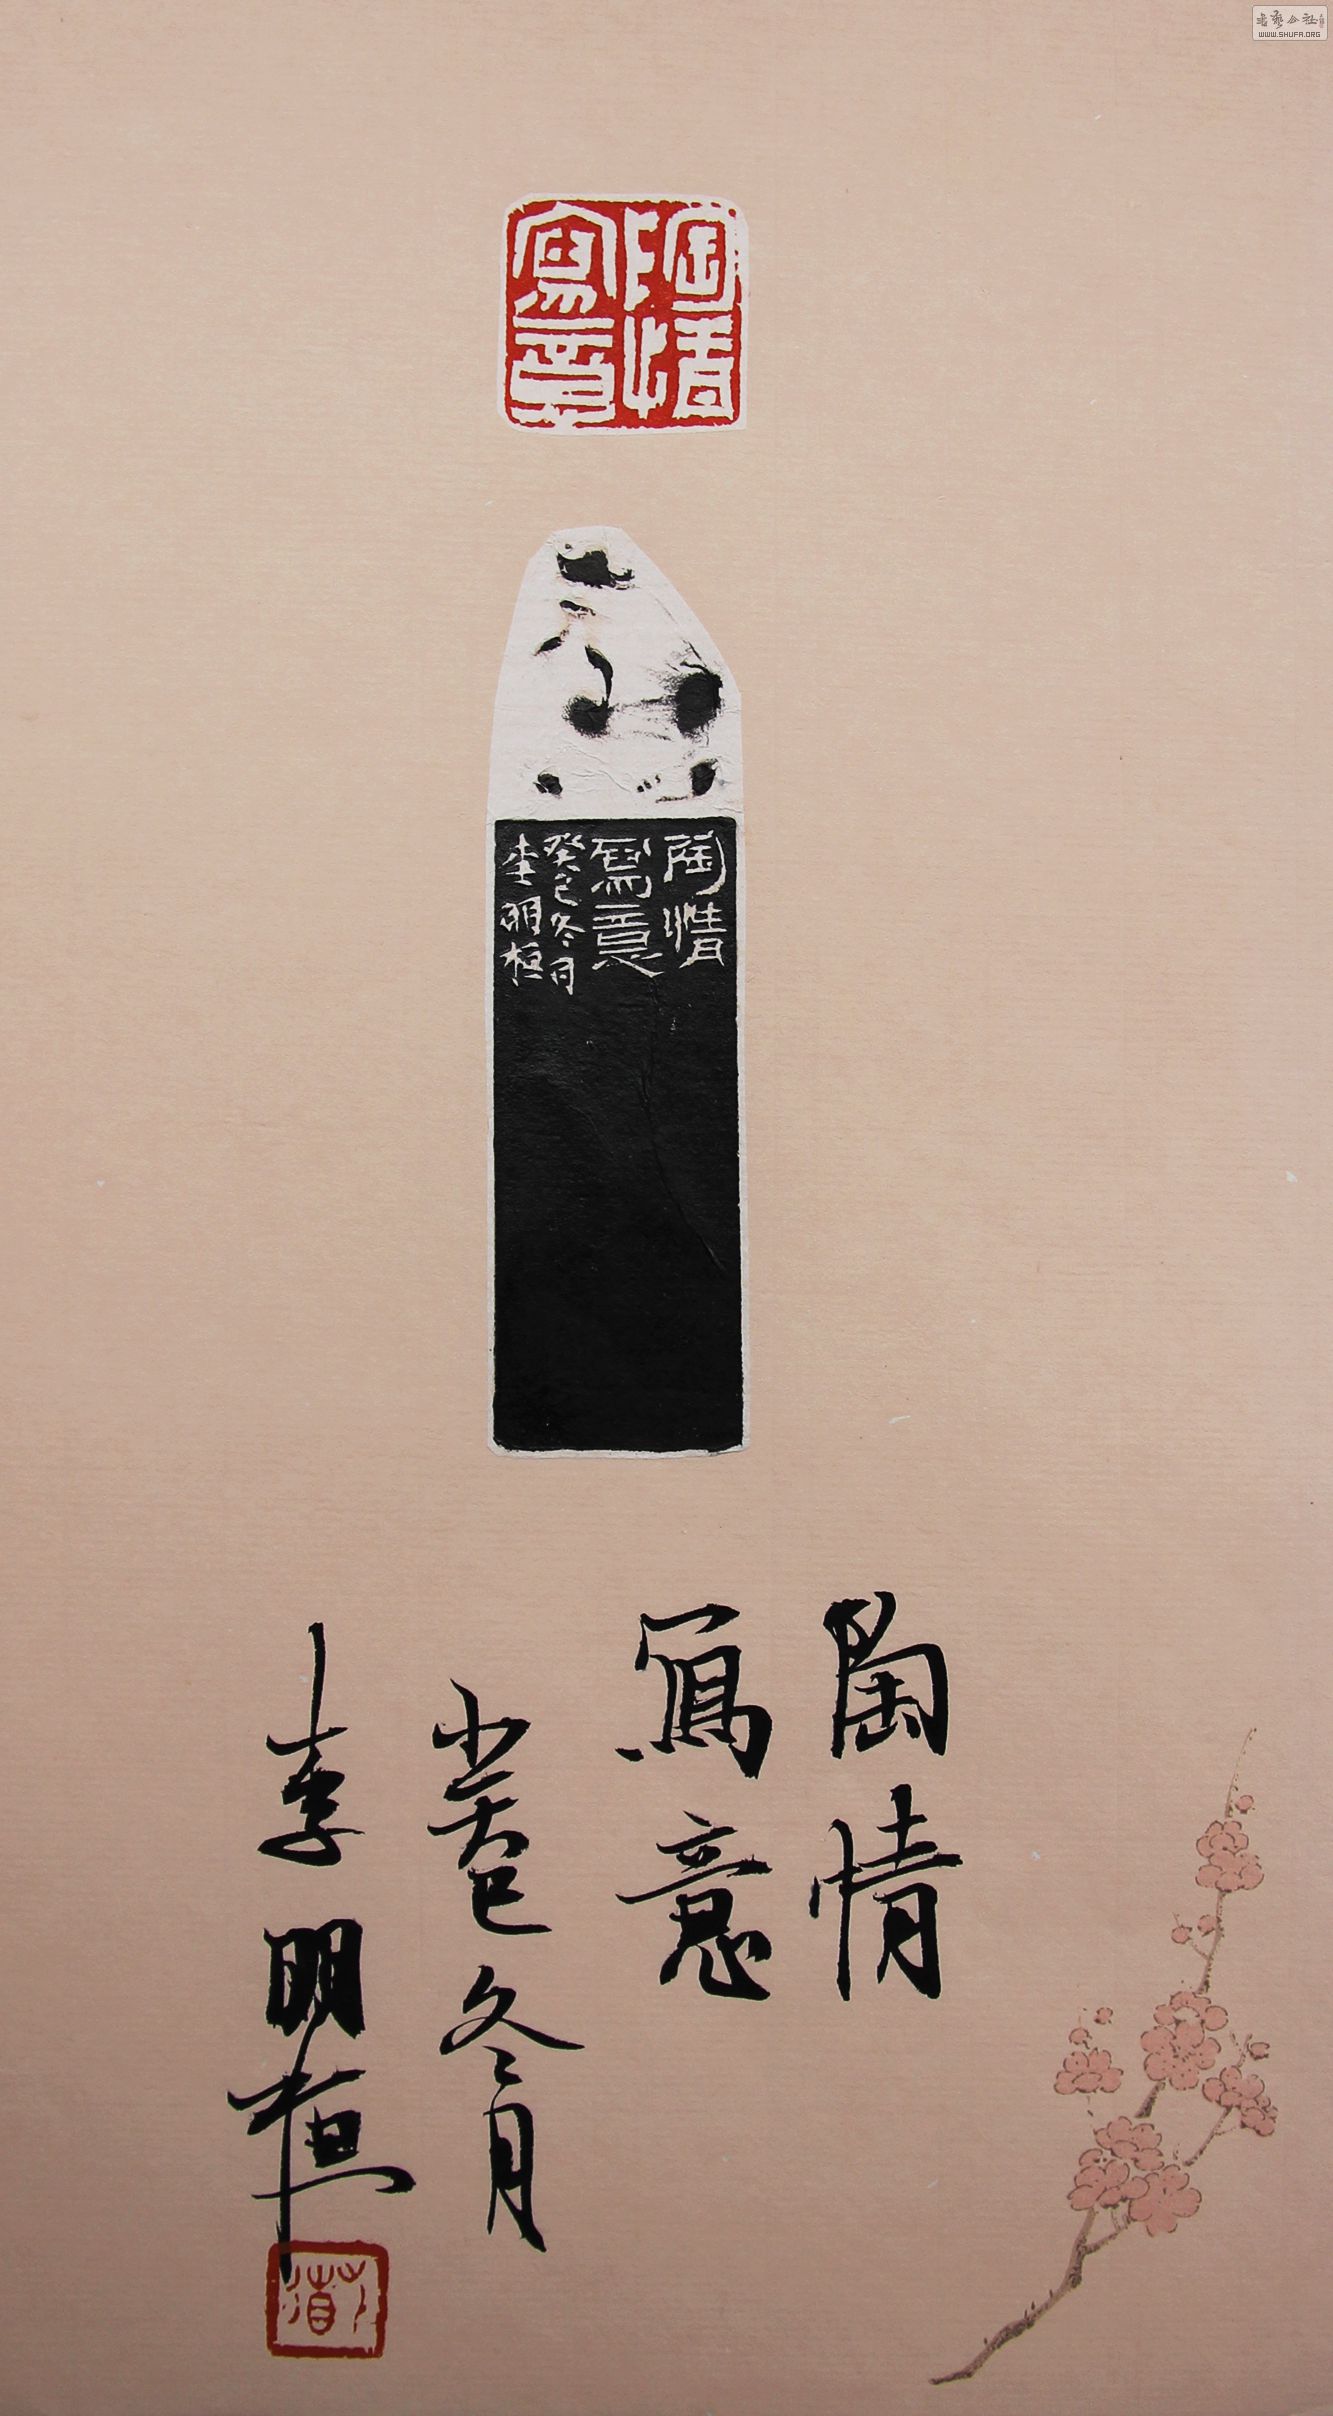 書藝公社
WWW.SHUFA.ORG
陶情
寫意
陶情
寫意
癸巳冬月
李明桓
陶情
寫意
癸巳冬月
李明桓